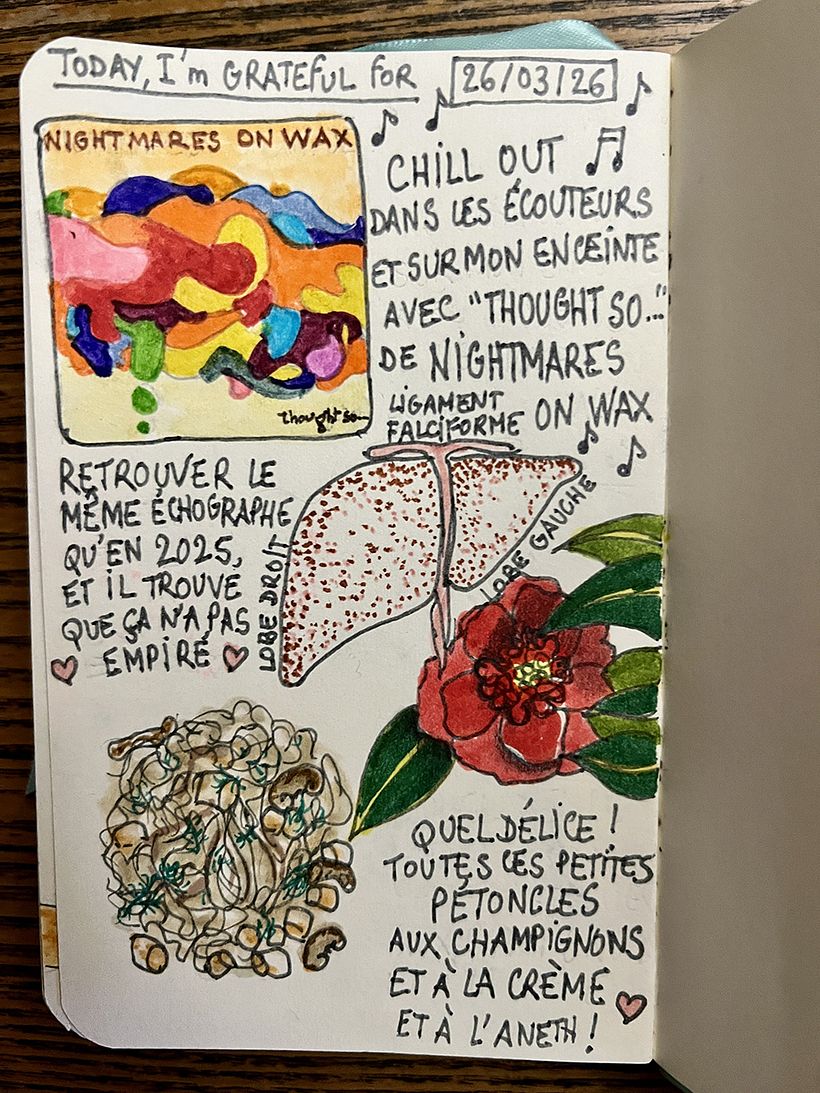 TODAY, I'm GRATEFUL FOR
26/03/26
NIGHTMARES ON WAX
thought so...
CHILL OUT
DANS LES ÉCOUTEURS
ET SUR MON ENCEINTE
AVEC "THOUGHT SO..."
DE NIGHTMARES
ON WAX
LIGAMENT
FALCIFORME
LOBE DROIT
LOBE GAUCHE
RETROUVER LE
MÊME ÉCHOGRAPHE
QU'EN 2025,
ET IL TROUVE
QUE ÇA N'A PAS
EMPIRÉ
QUEL DÉLICE !
TOUTES CES PETITES
PÉTONCLES
AUX CHAMPIGNONS
ET À LA CRÈME
ET À L'ANETH !